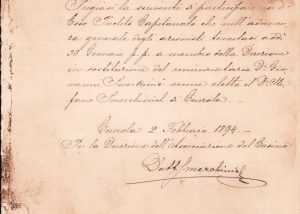 Pregiasi la servente d' partecipare a d'
Eccelso Inclito Capitanale che nell'adunan-
za generale degli azionisti tenutasi addì
30 Gennaio p.p. a membro della Direzione
in sostituzione del rinunciatario Dr Gio-
vanni venne eletto il Dr
fano di Curzola.
Curzola 2 Febbraio 1894.
Per la Direzione dell'Associazione del Casino
Dott Smerchinich